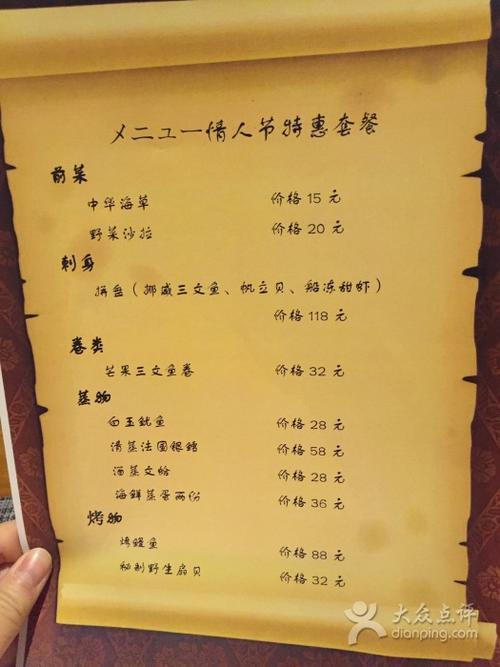 メニュー情人节特惠套餐
前菜
中华海草 价格 15 元
野菜沙拉 价格 20 元
刺身
拼盘（挪威三文鱼、帆立贝、船冻甜虾）
价格 118 元
卷类
芒果三文鱼卷 价格 32 元
蒸物
白玉鱿鱼 价格 28 元
清蒸法国银鳕 价格 58 元
酒蒸文蛤 价格 28 元
海鲜蒸蛋两份 价格 36 元
烤物
烤鳗鱼 价格 88 元
秘制野生扇贝 价格 32 元
大众点评
dianping.com